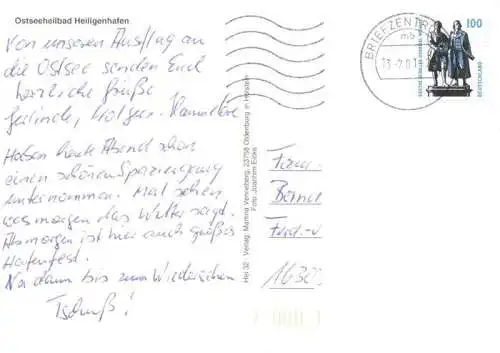 Ostseeheilbad Heiligenhafen
Von unseren Ausflug an
die Ostsee senden Euch
herzliche Grüße
Holger
Haben heute Abend schon
einen schönen Spaziergang
unternommen. Mal sehen
was morgen das Wetter sagt.
Ab morgen ist hier auch großes
Hafenfest.
Na dann bis zum Wiedersehen
Tschüß!
Hei 32 Verlag: Martina Venneberg, 23758 Oldenburg in Holstein
Foto: Joachim Eicke
BRIEFZENTR
mb
100
DEUTSCHLAND
Fam.